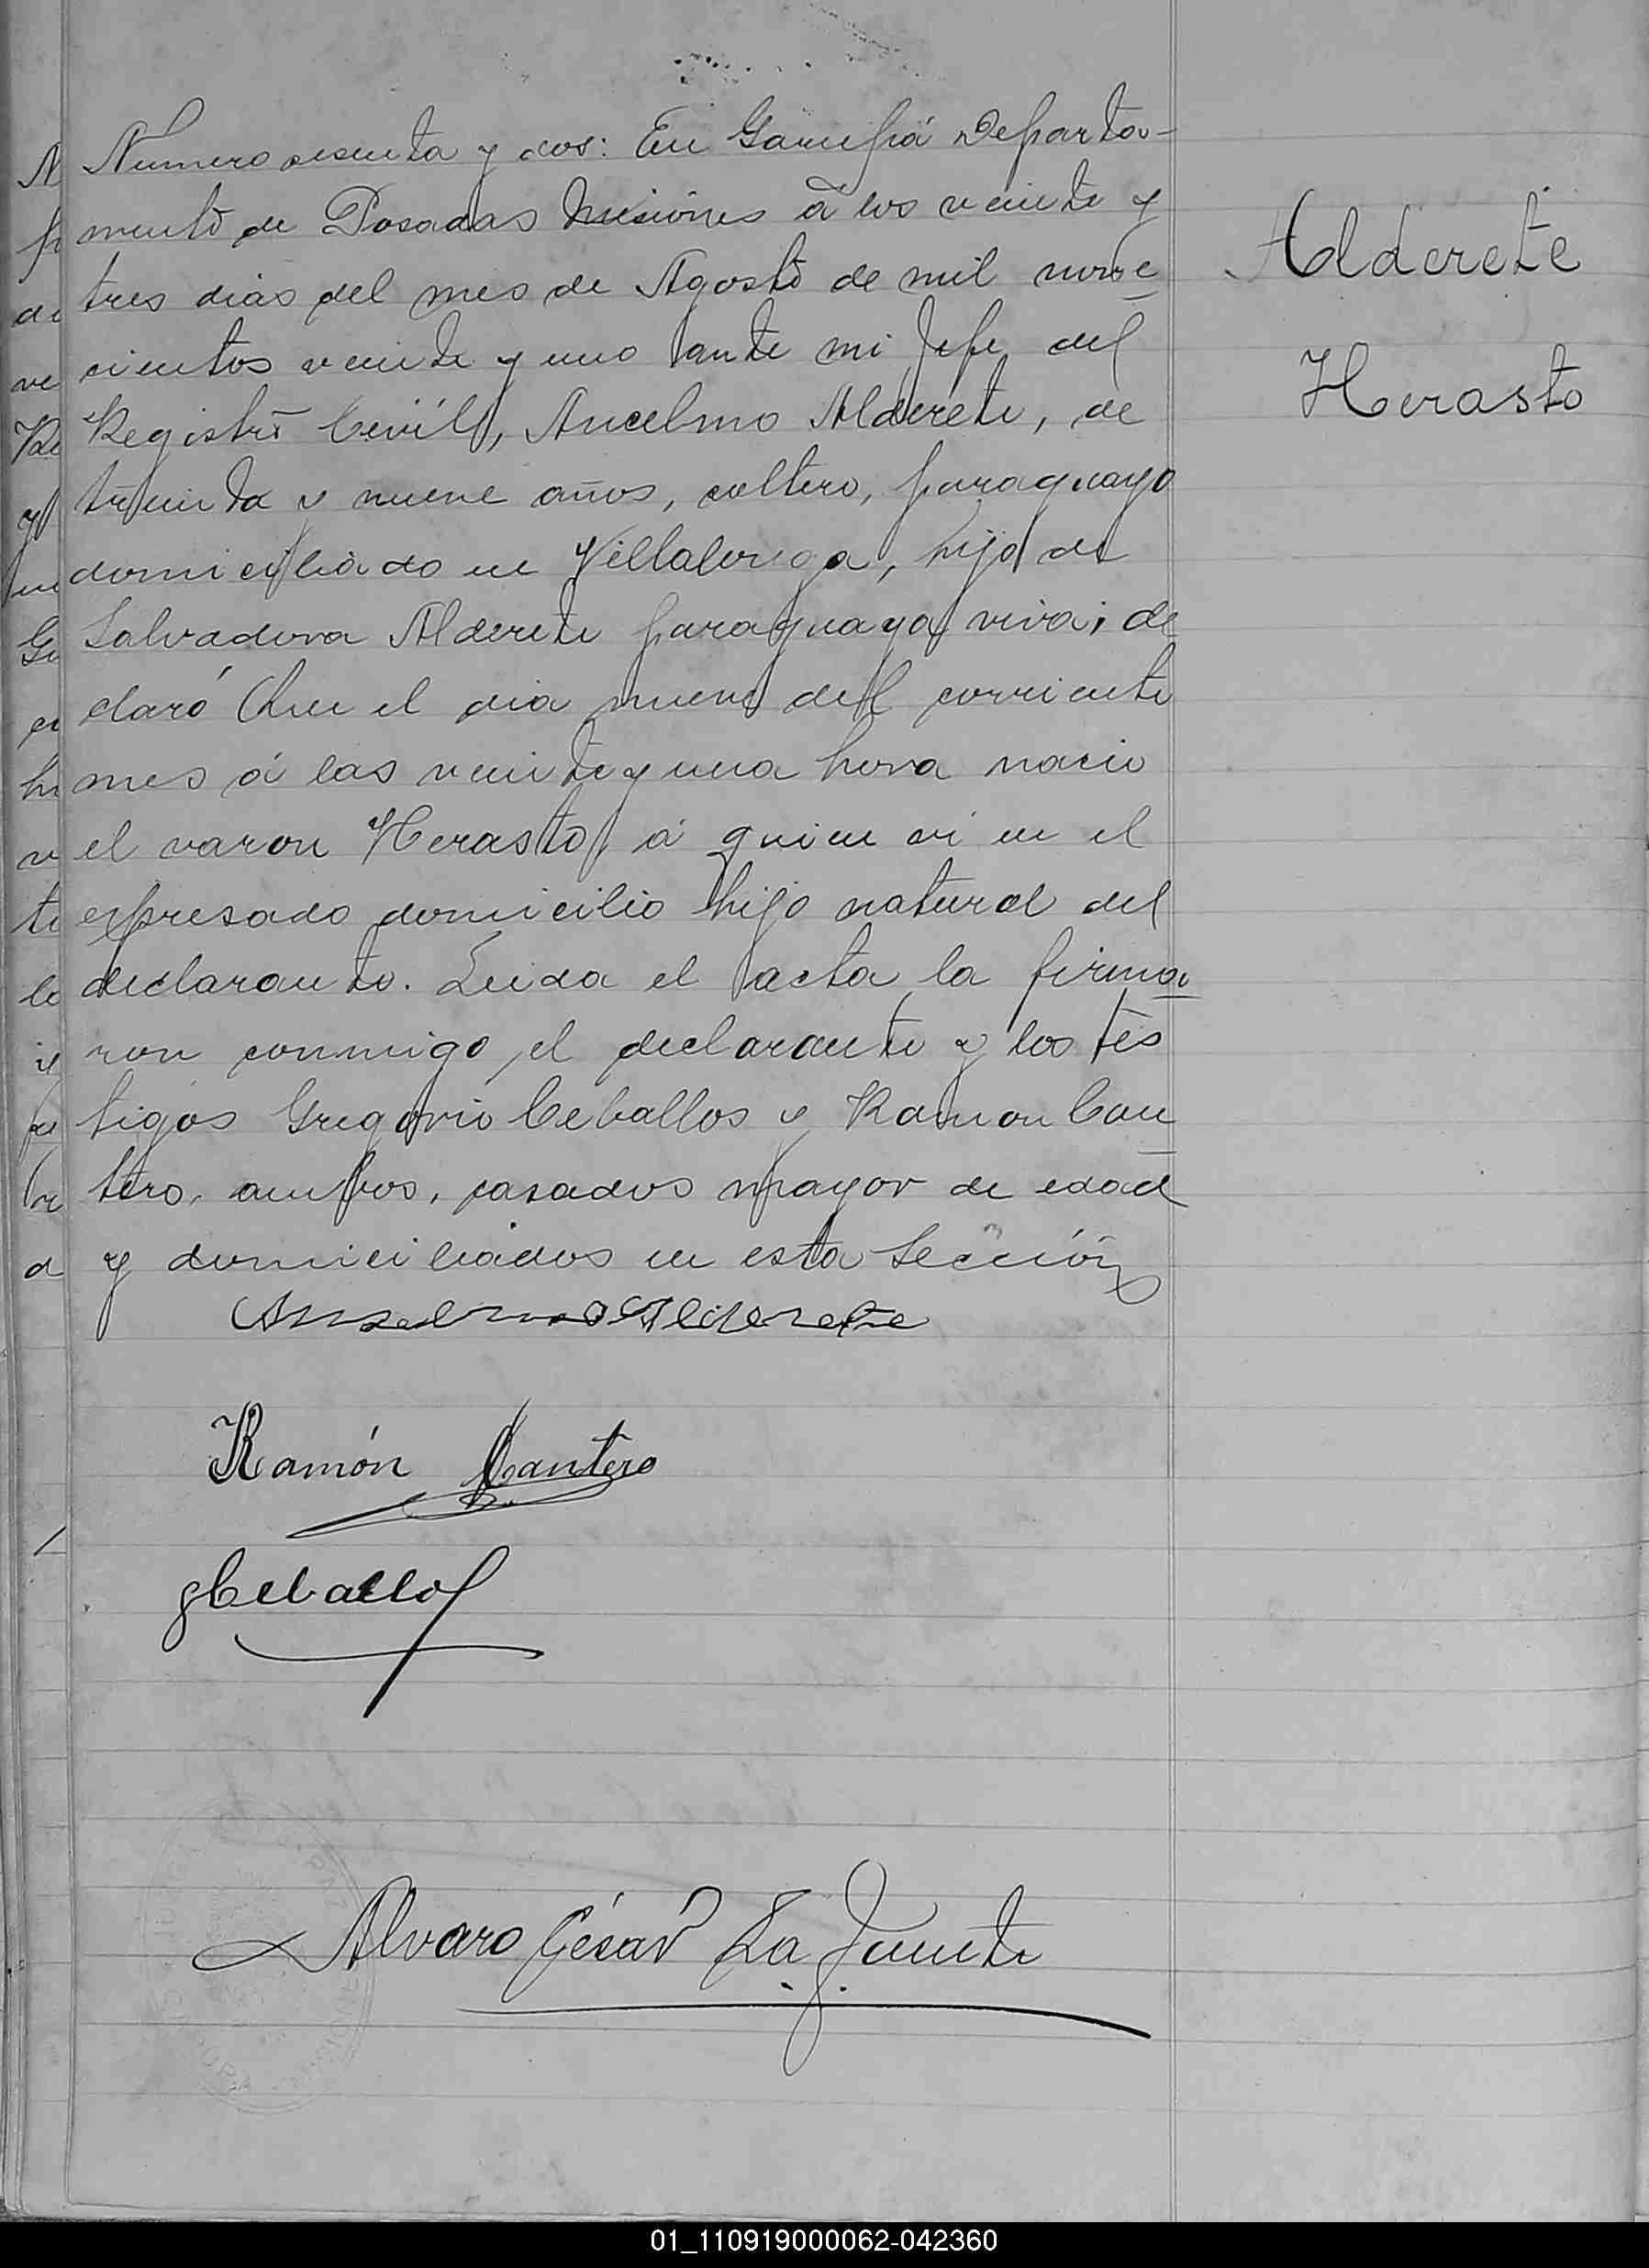 Numero sesenta y dos: En Garupá Departa-
mento de Posadas Misiones á los veinte y
tres dias del mes de Agosto de mil nove
cientos veinte y uno ante mi Jefe del
Registro Civíl, Ancelmo Alderete, de
treinta y nueve años, soltero, paraguayo
domiciliado en Villalonga, hijo de
Salvadora Alderete paraguaya viva; de
claró Que el dia nueve del corriente
mes á las veinte y una hora nacio
el varon Herasto, á quien vi en el
expresado domicilio hijo natural del
declarante. Leida el acta la firma
ron conmigo el declarante y los tes
tigos Gregorio Ceballos y Ramon Can
tero, ambos, casados mayor de edad
y domiciliados en esta Sección
Anselmo Alderete
Ramón Cantero
gCeballos
Alvaro César La Fuente
Alderete
Herasto
01_110919000062-042360